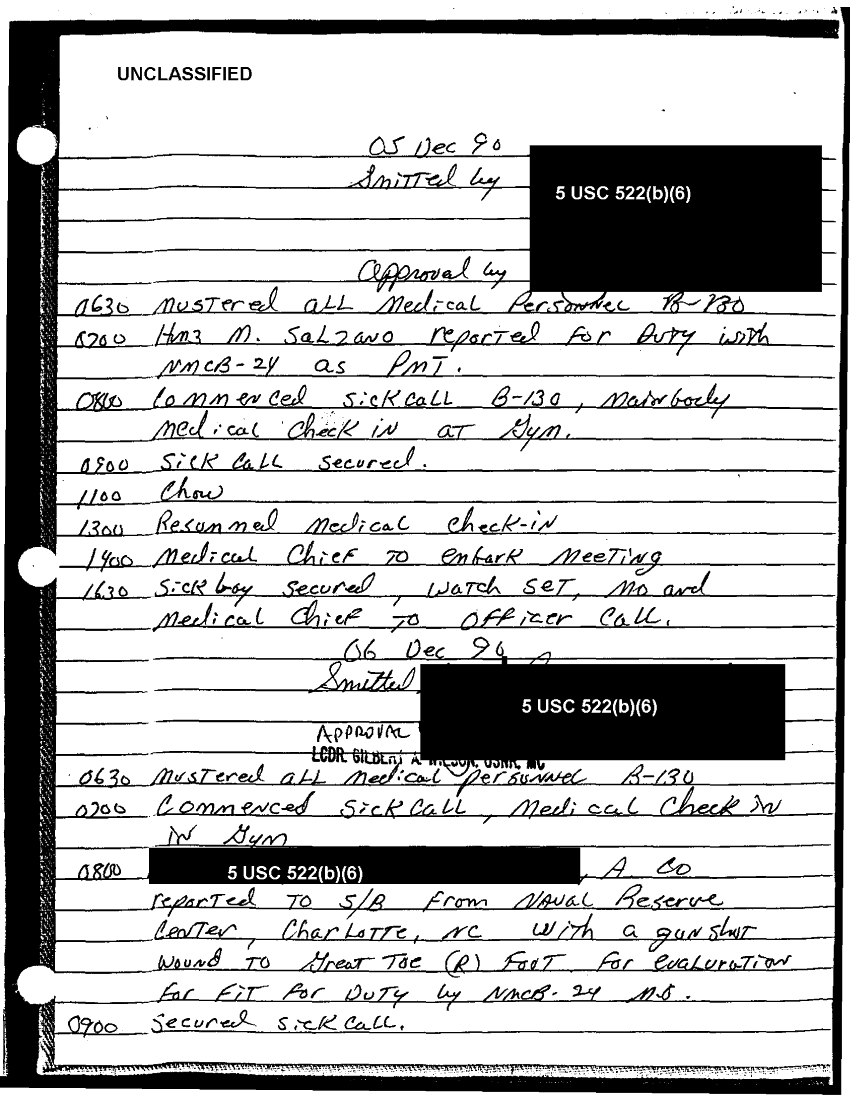 UNCLASSIFIED
05 Dec 90
Smitted by
5 USC 522(b)(6)
Approval by
0630 Mustered all Medical Personnel B-130
0700 HM3 M. Salzano reported for Duty with
NMCB-24 as PMT.
0800 Commenced sickcall B-130, Mainbody
Medical Check in at Gym.
0900 Sick Call secured.
1100 Chow
1300 Resummed Medical check-in
1400 Medical Chief to embark Meeting
1630 Sickbay secured, watch set, MO and
Medical Chief to Officer Call.
06 Dec 90
Smitted
5 USC 522(b)(6)
APPROVAL
LCDR. GILBERT A. WILSON, USNR, MC
0630 Mustered all Medical personnel B-130
0700 Commenced Sick Call, Medical Check in
in Gym
0800 5 USC 522(b)(6), A Co
reported to S/B from Naval Reserve
Center, Charlotte, NC with a gun shut
wound to Great Toe (R) Foot for evaluration
for Fit for Duty by NMCB-24 M.O.
0900 Secured sickcall.